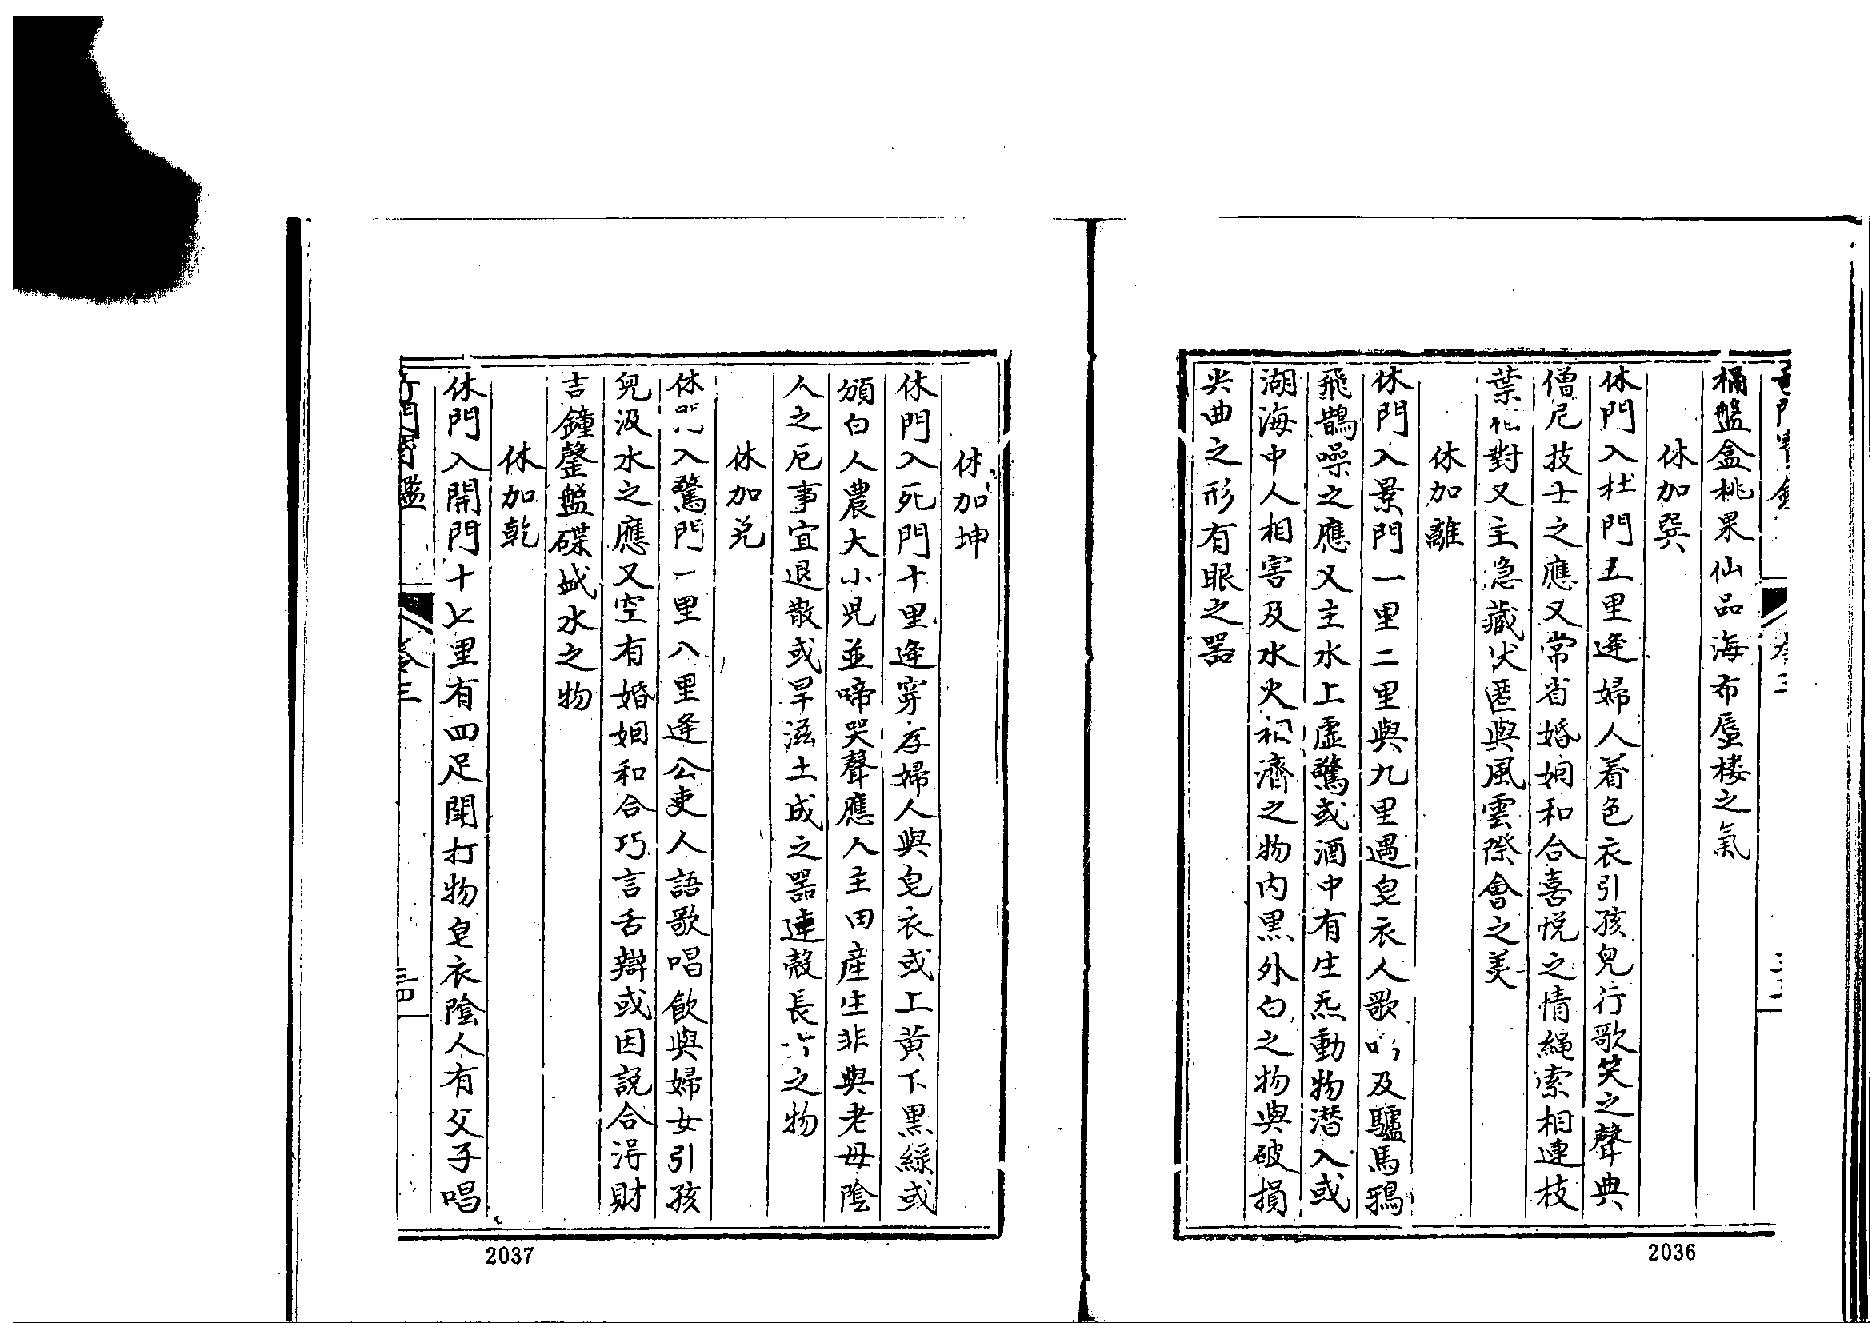 桶盤盒桃果仙品海布蜃楼之氣
休加巽
休門入杜門五里逢婦人着色衣引孩兒行歌笑之聲典
僧尼技士之應又常省婚姻和合喜悅之情繩索相連枝
葉相對又主隐藏伏匿與風雲際會之美
休加離
休門入景門一里二里與九里遇皂衣人歌唱及驢馬鴉
飛鵲噪之應又主水上虚驚或酒中有生炁動物潛入或
湖海中人相害及水火相濟之物内黑外白之物與破損
尖曲之形有眼之器
2036
休加坤
休門入死門十里逢穿孝婦人與皂衣或上黄下黑綠或
頒白人農大小児並啼哭聲應人主田產生非與老母陰
人之厄事宜退散或旱滋土成之器連殼長之物
休加兑
休門入驚門一里八里逢公吏人語歌唱飲與婦女引孩
兒汲水之應又空有婚姻和合巧言舌辯或因説合淂財
吉鐘磬盤碟城水之物
休加乾
休門入開門十七里有四足聞打物皂衣陰人有父子唱
卷三
三四
2037